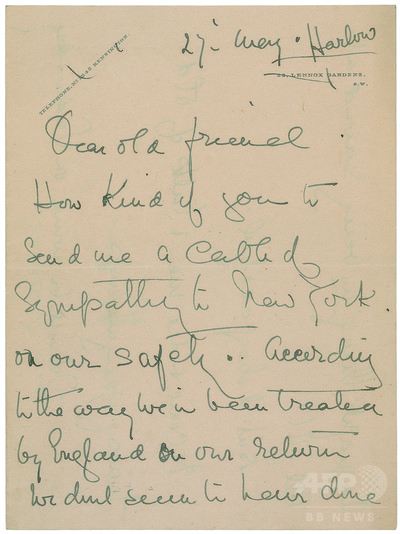 27th May. Harlow
TELEPHONE, Nº 845 KENSINGTON
22, LENNOX GARDENS,
S.W.
Dear old friend
How Kind of you to
send me a Cable of
Sympathy to New York.
on our safety .. According
to the way we've been treated
by England on our return
we didnt seem to have done
AFP
BB NEWS